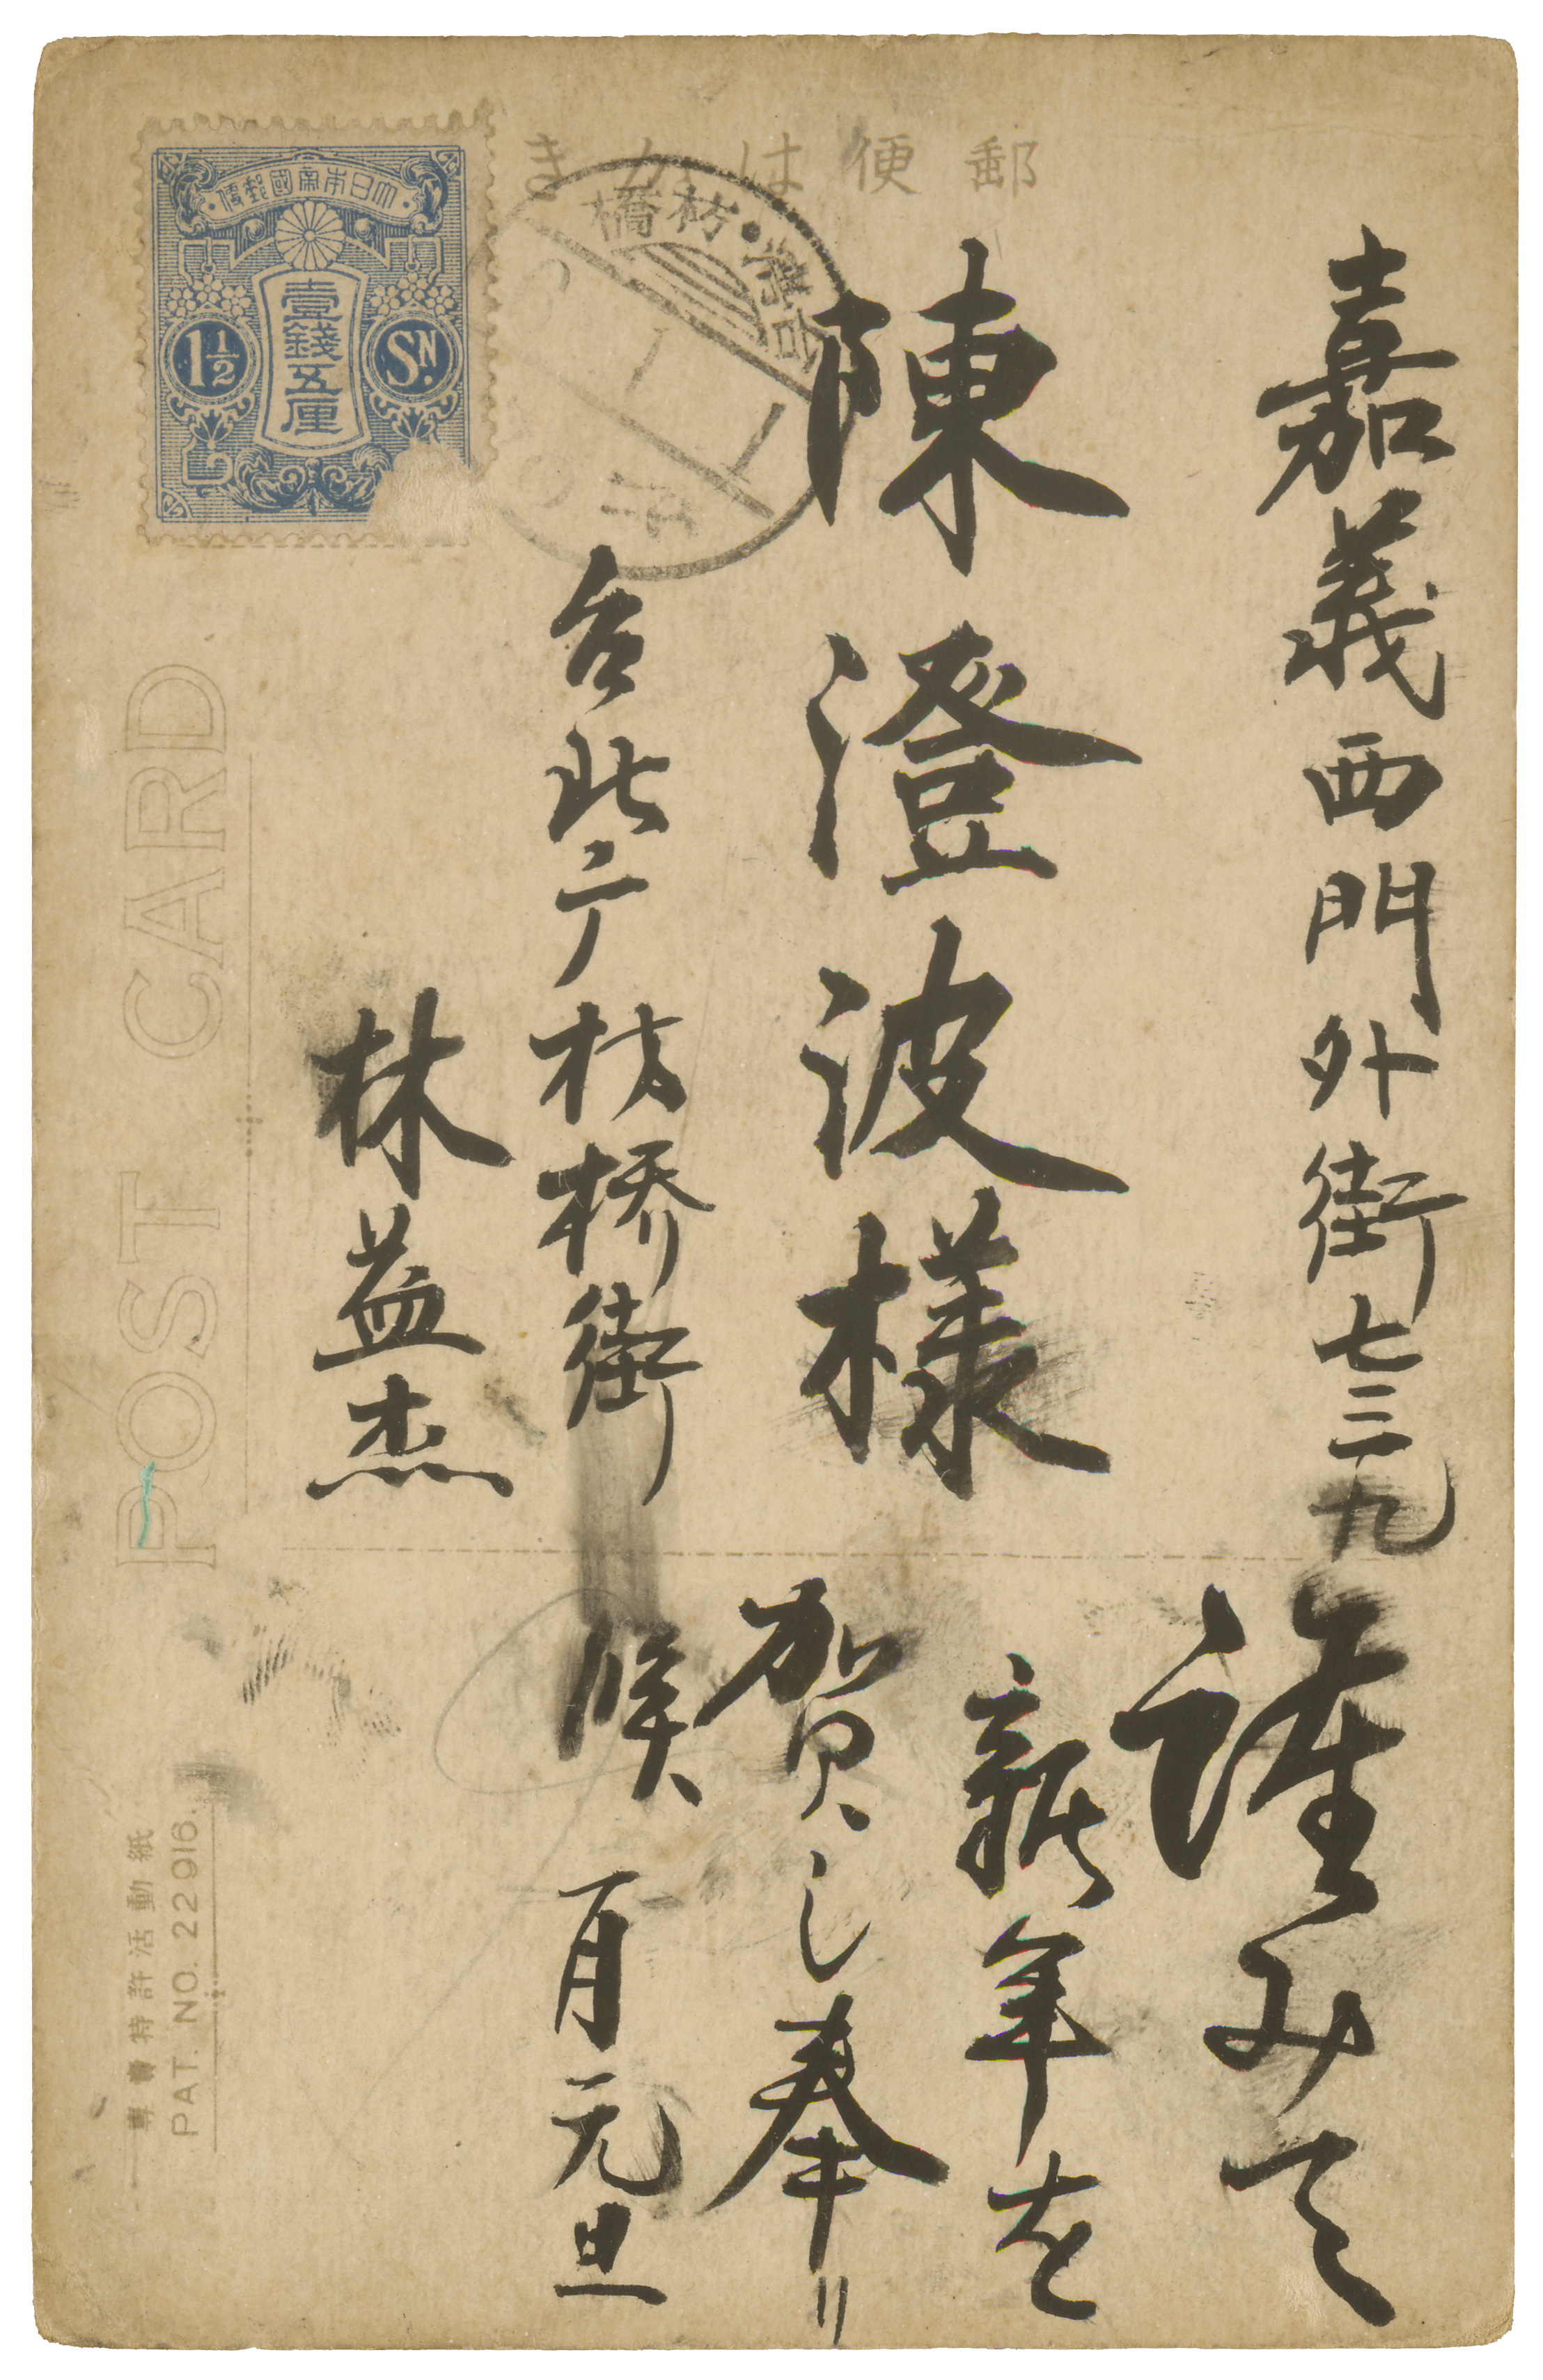 郵便はがき
大日本帝國郵便
壹錢五厘
1½
SN.
枋橋・臺灣
嘉義西門外街七三九
陳澄波様
台北庁枋橋街
林益杰
謹みて
新年を
賀し奉り
候
一月元旦
POST CARD
專賣特許活動紙
PAT. NO. 22916.